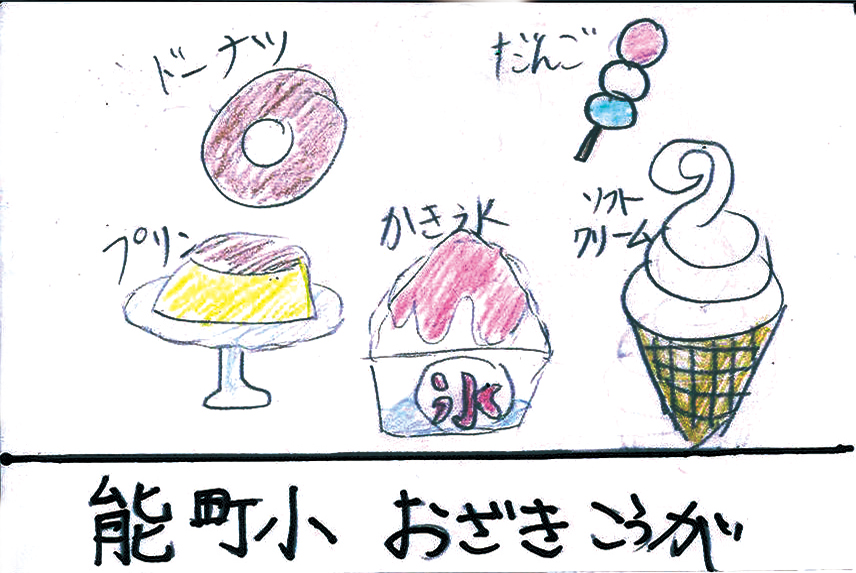 ドーナツ
だんご
プリン
かき氷
ソフト
クリーム
氷
能町小 おざきこうが